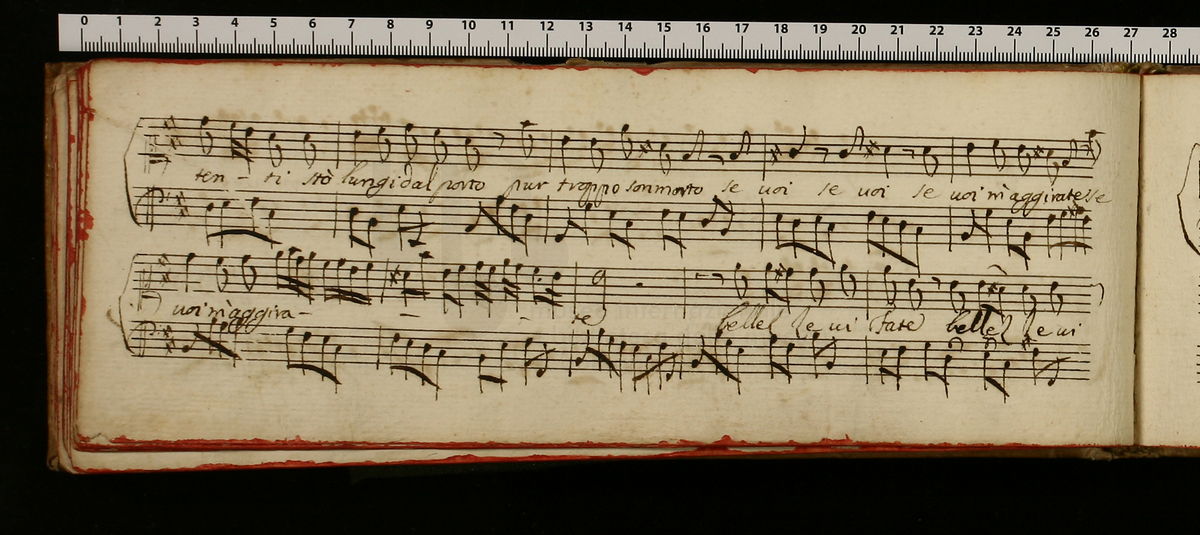 0 1 2 3 4 5 6 7 8 9 10 11 12 13 14 15 16 17 18 19 20 21 22 23 24 25 26 27 28
ten - ti stò lungi dal porto pur troppo son morto se uoi se uoi se uoi m'aggirate se
uoi m'aggira - - - te belle e ui fate belle e ui